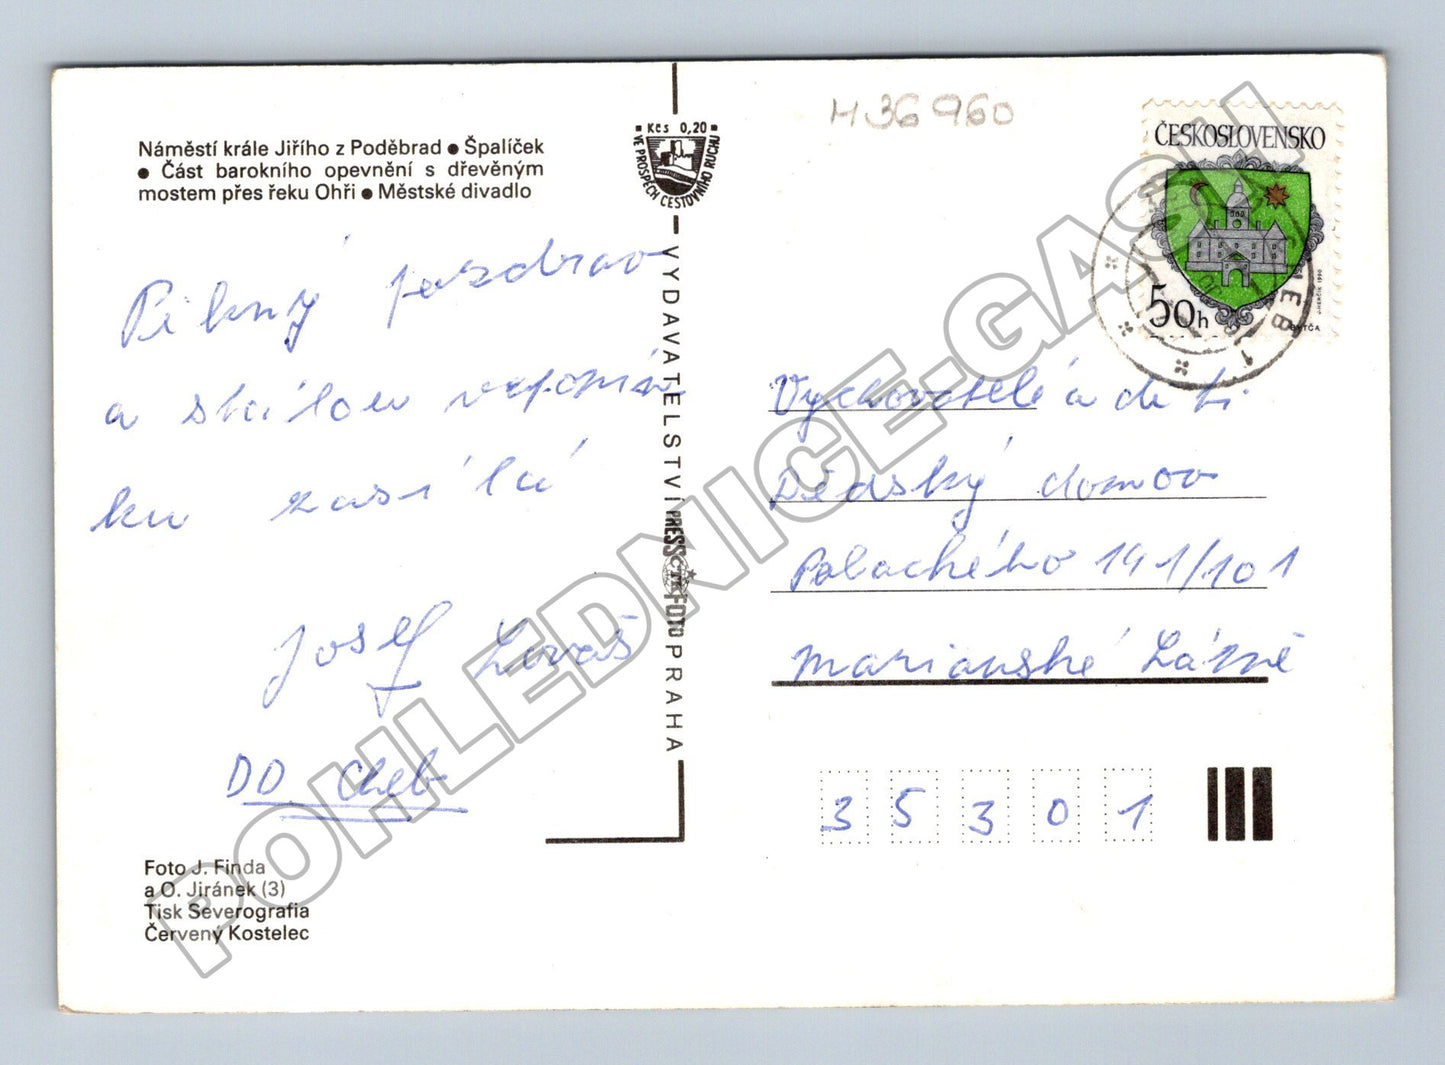 Náměstí krále Jiřího z Poděbrad ● Špalíček
● Část barokního opevnění s dřevěným
mostem přes řeku Ohři ● Městské divadlo
Kčs 0,20
VE PROSPĚCH CESTOVNÍHO RUCHU
VYDAVATELSTVÍ PRESSFOTO PRAHA
ČTK
H36960
ČESKOSLOVENSKO
50h
BYTČA
1990
CHEB 1
Pěkný pozdrav
a stálou vzpomín
ku zasílá
Josef
DD Cheb
Vychovatelé a děti
Dědský domov
Palachého 191/101
Marianské Lázně
35301
Foto J. Finda
a O. Jiránek (3)
Tisk Severografia
Červený Kostelec
POHLEDNICE.GASH